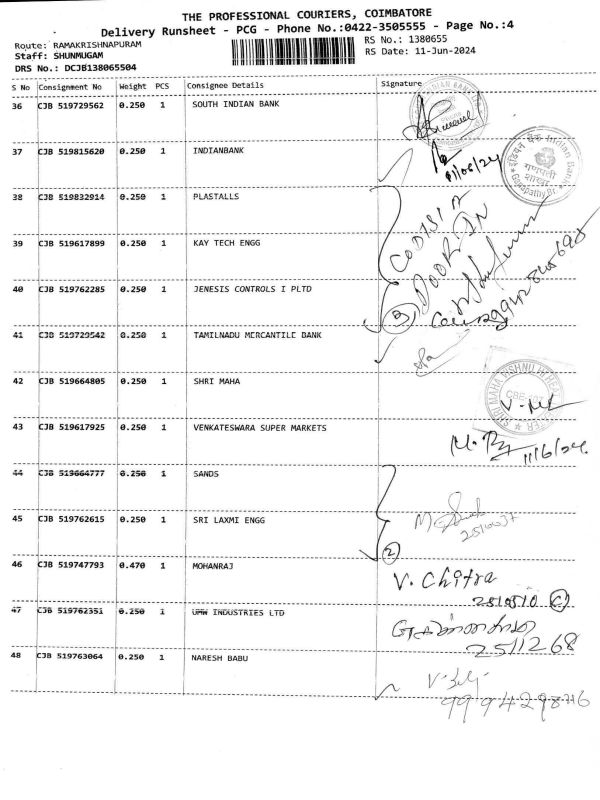 THE PROFESSIONAL COURIERS, COIMBATORE
Delivery Runsheet - PCG - Phone No.:0422-3505555 - Page No.:4
Route: RAMAKRISHNAPURAM RS No.: 1380655
Staff: SHUNMUGAM RS Date: 11-Jun-2024
DRS No.: DCJB138065504
S No Consignment No Weight PCS Consignee Details Signature
36 CJB 519729562 0.250 1 SOUTH INDIAN BANK
37 CJB 519815620 0.250 1 INDIANBANK
11/06/24
इंडियन बैंक Indian Bank
गणपती शाखा
Ganapathy Br.
38 CJB 519832914 0.250 1 PLASTALLS
CODISIA
DOOR IN
39 CJB 519617899 0.250 1 KAY TECH ENGG
40 CJB 519762285 0.250 1 JENESIS CONTROLS I PLTD
3
41 CJB 519729542 0.250 1 TAMILNADU MERCANTILE BANK
42 CJB 519664805 0.250 1 SHRI MAHA
SHRI MAHA VISHNU
CBE
43 CJB 519617925 0.250 1 VENKATESWARA SUPER MARKETS
11/6/24
44 CJB 519664777 0.250 1 SANDS
45 CJB 519762615 0.250 1 SRI LAXMI ENGG
2510037
2
46 CJB 519747793 0.470 1 MOHANRAJ
V. Chitra
2510510
47 CJB 519762351 0.250 1 UMW INDUSTRIES LTD
2511268
48 CJB 519763064 0.250 1 NARESH BABU